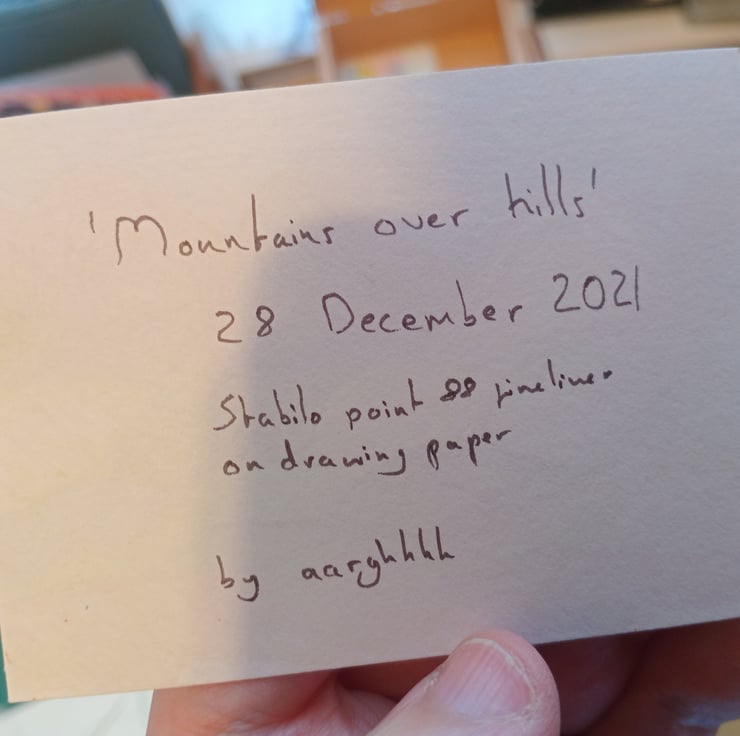 'Mountains over hills'
28 December 2021
Stabilo point 88 fineliner
on drawing paper
by aarghhhh